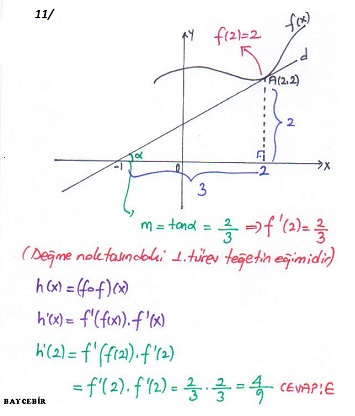 11/
f(2)=2
y
f(x)
d
A(2,2)
2
α
-1
0
2
x
3
m = tanα = 2/3 ⇒ f'(2) = 2/3
(Değme noktasındaki 1. türev teğetin eğimidir)
h(x) = (fof)(x)
h'(x) = f'(f(x)).f'(x)
h'(2) = f'(f(2)).f'(2)
= f'(2).f'(2) = 2/3 . 2/3 = 4/9 CEVAP:E
BAYCEBİR